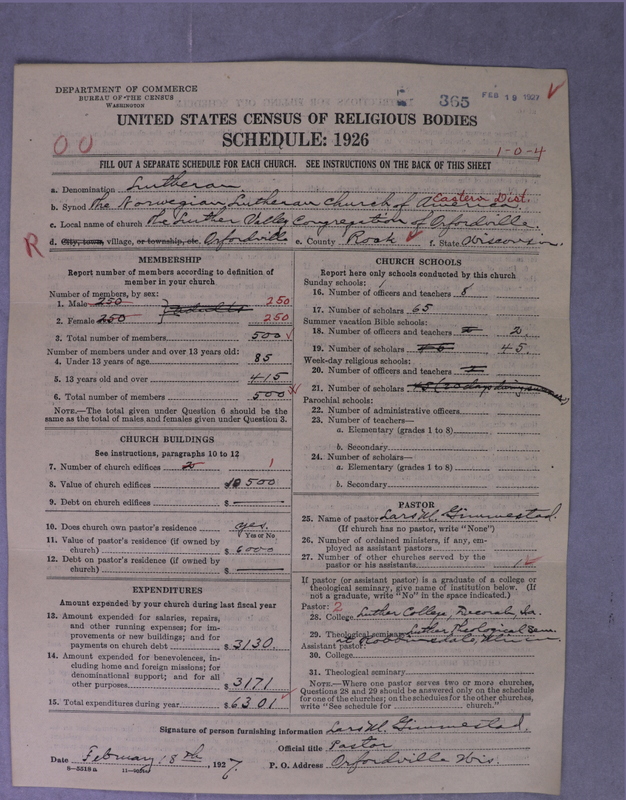 DEPARTMENT OF COMMERCE
BUREAU OF THE CENSUS
WASHINGTON
365 FEB 19 1927
UNITED STATES CENSUS OF RELIGIOUS BODIES
SCHEDULE: 1926
00
1-0-4
FILL OUT A SEPARATE SCHEDULE FOR EACH CHURCH. SEE INSTRUCTIONS ON THE BACK OF THIS SHEET
a. Denomination Lutheran
b. Synod The Norwegian Lutheran Church of America. Eastern Dist.
c. Local name of church The Luther Valley Congregation of Orfordville.
R d. City, town, village, or township, etc. Orfordville e. County Rock f. State Wisconsin.
MEMBERSHIP
Report number of members according to definition of
member in your church
Number of members, by sex:
1. Male 250 250
2. Female 250 adults 250
3. Total number of members 500
Number of members under and over 13 years old:
4. Under 13 years of age 85
5. 13 years old and over 415
6. Total number of members 500
NOTE.—The total given under Question 6 should be the
same as the total of males and females given under Question 3.
CHURCH BUILDINGS
See instructions, paragraphs 10 to 12
7. Number of church edifices 2 1
8. Value of church edifices 500
9. Debt on church edifices $ —
10. Does church own pastor's residence yes.
Yes or No
11. Value of pastor's residence (if owned by
church) $ 6000
12. Debt on pastor's residence (if owned by
church) $ —
EXPENDITURES
Amount expended by your church during last fiscal year
13. Amount expended for salaries, repairs,
and other running expenses; for im-
provements or new buildings; and for
payments on church debt $ 3130.
14. Amount expended for benevolences, in-
cluding home and foreign missions; for
denominational support; and for all
other purposes $ 3171
15. Total expenditures during year $ 6301
CHURCH SCHOOLS
Report here only schools conducted by this church
Sunday schools: 1
16. Number of officers and teachers 8
17. Number of scholars 65
Summer vacation Bible schools:
18. Number of officers and teachers 2
19. Number of scholars 45
Week-day religious schools:
20. Number of officers and teachers
21. Number of scholars
Parochial schools:
22. Number of administrative officers
23. Number of teachers—
a. Elementary (grades 1 to 8)
b. Secondary
24. Number of scholars—
a. Elementary (grades 1 to 8)
b. Secondary
PASTOR
25. Name of pastor Lars M. Gimmestad.
(If church has no pastor, write "None")
26. Number of ordained ministers, if any, em-
ployed as assistant pastors
27. Number of other churches served by the
pastor or his assistants 1
If pastor (or assistant pastor) is a graduate of a college or
theological seminary, give name of institution below. (If
not a graduate, write "No" in the space indicated.)
Pastor: 2
28. College Luther College, Decorah, Ia.
29. Theological seminary Luther Theological Sem.
at Robbinsdale, Minn.
Assistant pastor:
30. College
31. Theological seminary
NOTE.—Where one pastor serves two or more churches,
Questions 28 and 29 should be answered only on the schedule
for one of the churches; on the schedules for the other churches,
write "See schedule for church."
Signature of person furnishing information Lars M. Gimmestad.
Official title Pastor
Date February 18th, 1927. P. O. Address Orfordville Wis.
8—5218a